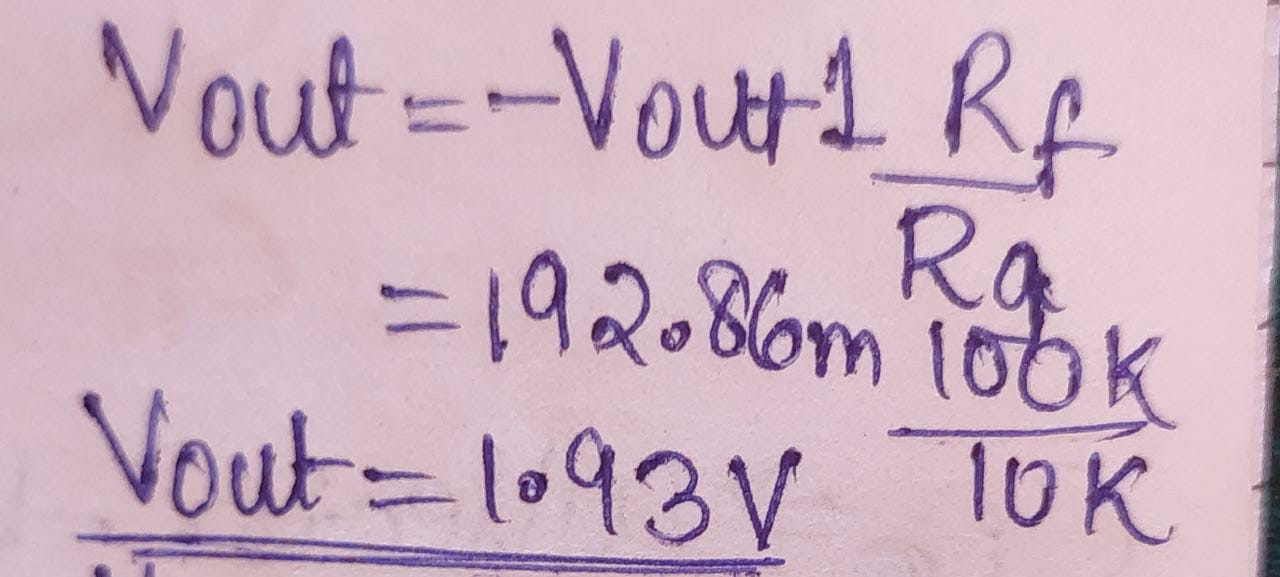 Vout = -Vout1 Rf/Rg
= 192.86m 100K/10K
Vout = 1.93V